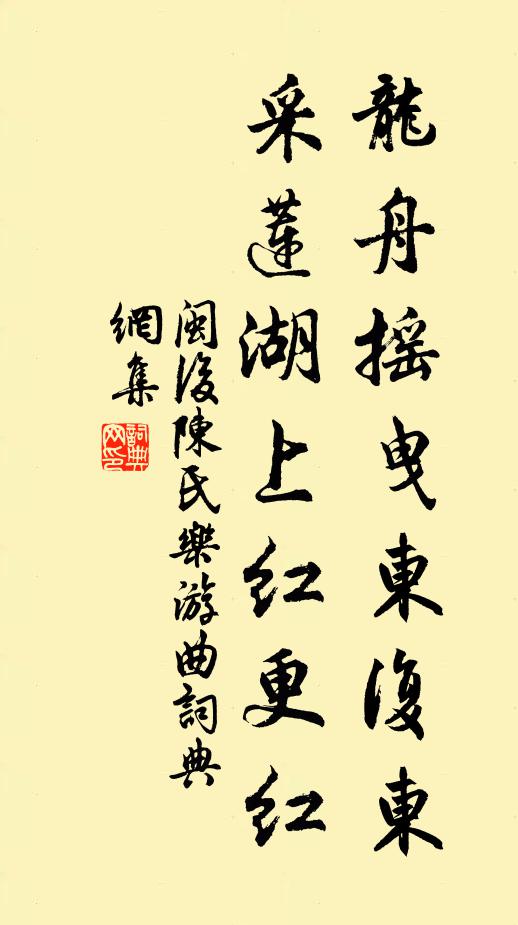 龍舟摇曳東復東
采蓮湖上紅更紅
閩後陳氏樂游曲詞典
網集
詞典网印